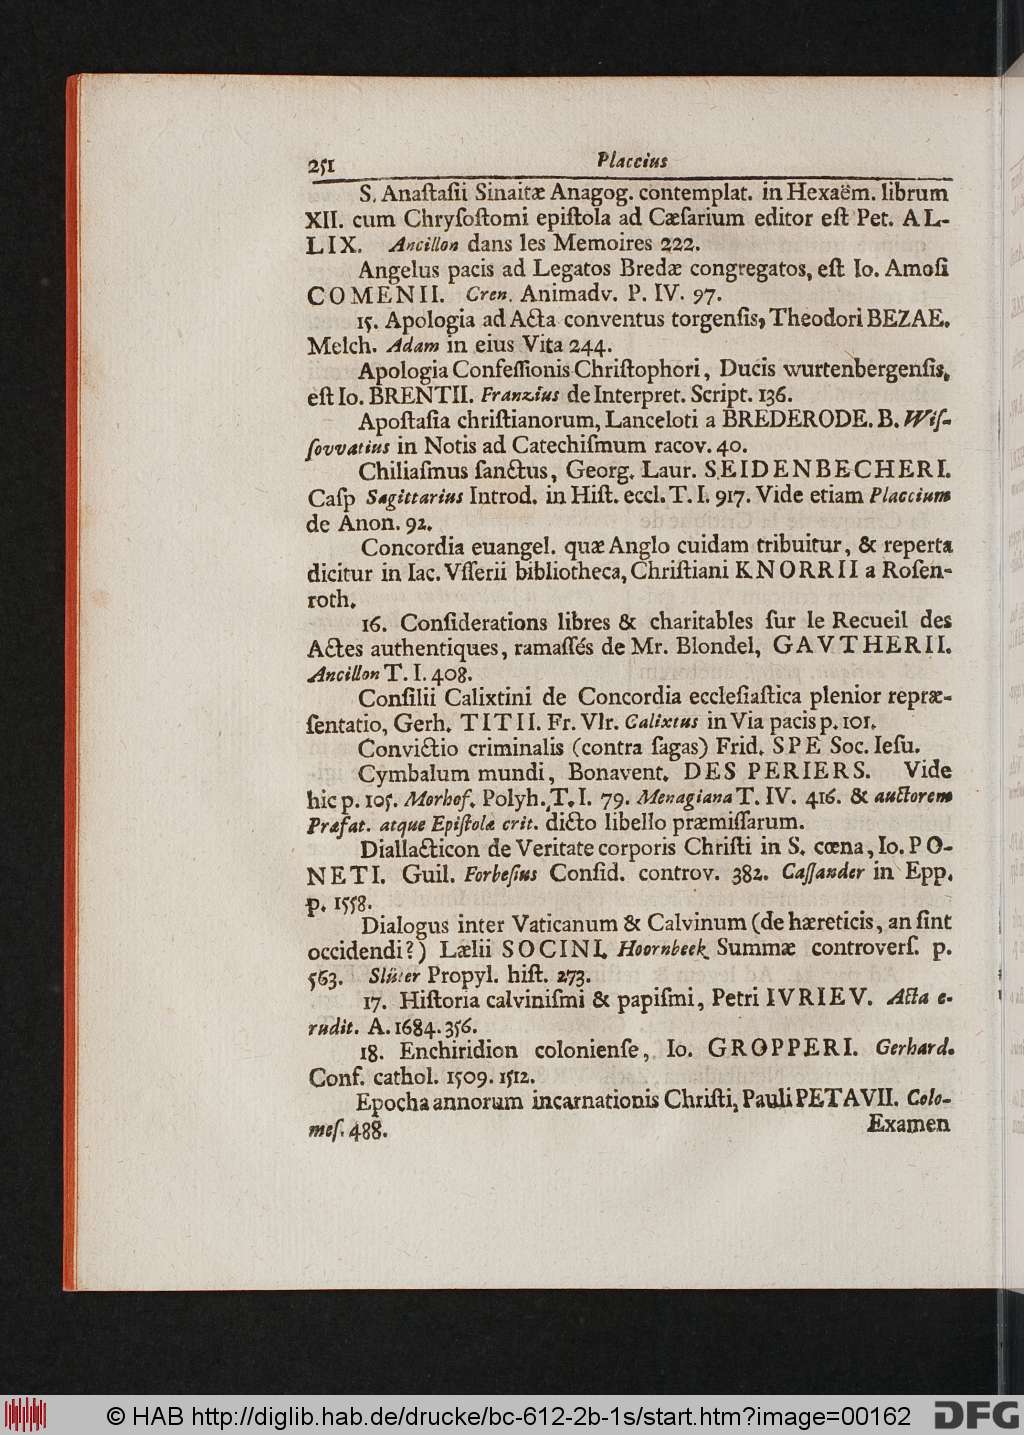 251 Placcius
S. Anaſtaſii Sinaitæ Anagog. contemplat. in Hexaëm. librum
XII. cum Chryſoſtomi epiſtola ad Cæſarium editor eſt Pet. AL-
LIX. Ancillon dans les Memoires 222.
Angelus pacis ad Legatos Bredæ congregatos, eſt Io. Amoſi
COMENII. Cren. Animadv. P. IV. 97.
15. Apologia ad Acta conventus torgenſis, Theodori BEZAE.
Melch. Adam in eius Vita 244.
Apologia Confeſſionis Chriſtophori, Ducis wurtenbergenſis,
eſt Io. BRENTII. Franzius de Interpret. Script. 136.
Apoſtaſia chriſtianorum, Lanceloti a BREDERODE. B. Wiſ-
ſovvatius in Notis ad Catechiſmum racov. 40.
Chiliaſmus ſanctus, Georg. Laur. SEIDENBECHERI.
Caſp Sagittarius Introd. in Hiſt. eccl. T. I. 917. Vide etiam Placcium
de Anon. 92.
Concordia euangel. quæ Anglo cuidam tribuitur, & reperta
dicitur in Iac. Vſſerii bibliotheca, Chriſtiani KNORRII a Roſen-
roth.
16. Conſiderations libres & charitables ſur le Recueil des
Actes authentiques, ramaſſés de Mr. Blondel, GAVTHERII.
Ancillon T. I. 408.
Conſilii Calixtini de Concordia eccleſiaſtica plenior repræ-
ſentatio, Gerh. TITII. Fr. Vlr. Calixtus in Via pacis p. 101.
Convictio criminalis (contra ſagas) Frid. SPE Soc. Ieſu.
Cymbalum mundi, Bonavent. DES PERIERS. Vide
hic p. 105. Morhof. Polyh. T. I. 79. Menagiana T. IV. 416. & auctorem
Præfat. atque Epiſtolæ crit. dicto libello præmiſſarum.
Diallacticon de Veritate corporis Chriſti in S. cœna, Io. PO-
NETI. Guil. Forbeſius Conſid. controv. 382. Caſſander in Epp.
p. 1558.
Dialogus inter Vaticanum & Calvinum (de hæreticis, an ſint
occidendi?) Lælii SOCINI. Hoornbeek Summæ controverſ. p.
563. Slüter Propyl. hiſt. 273.
17. Hiſtoria calviniſmi & papiſmi, Petri IVRIEV. Acta e-
rudit. A. 1684. 356.
18. Enchiridion colonienſe, Io. GROPPERI. Gerhard.
Conf. cathol. 1509. 1512.
Epocha annorum incarnationis Chriſti, Pauli PETAVII. Colo-
meſ. 488.
Examen
© HAB http://diglib.hab.de/drucke/bc-612-2b-1s/start.htm?image=00162
DFG